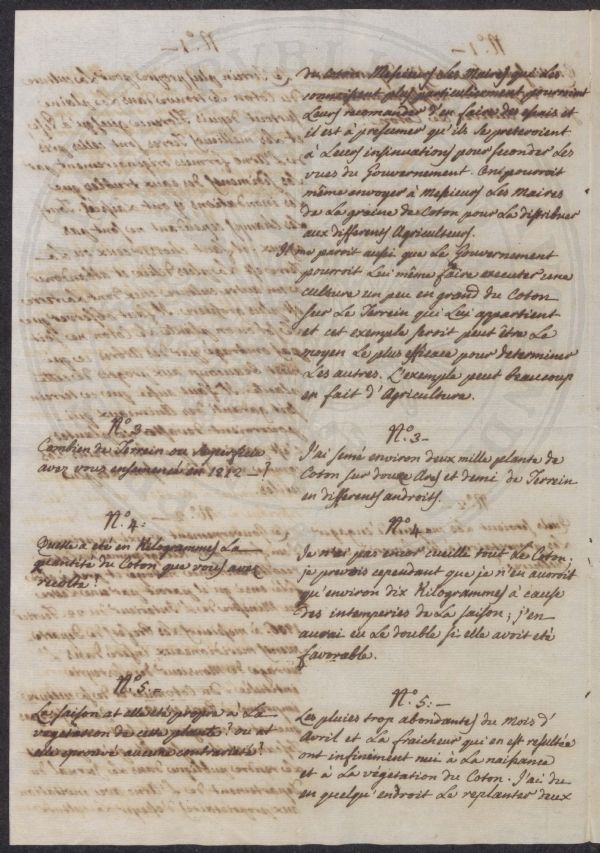 du coton Messieurs Les Maires qui Les
connoissent plus particulierement pourroient
Leurs recomander d'en faire des essais et
il est à presumer qu'ils se preteroient
à Leurs insinuations pour seconder Les
vues du Gouvernement. On pourroit
même envoyer à Messieurs Les Maires
de La graine de Coton pour La distribuer
aux differents Agriculteurs.
Il me paroit aussi que Le Gouvernement
pourroit Lui même faire executer une
culture un peu en grand du Coton
sur Le Terrein qui Lui appartient
et cet exemple seroit peut être Le
moyen Le plus efficace pour determiner
Les autres. L'exemple peut beaucoup
en fait d'Agriculture.
N.º 3 -
Combien de Terrein ou superficie
avez vous ensemencé en 1812 - ?
N.º 3 -
J'ai semé environ deux mille plante de
Coton sur douze Ares et demi de Terrein
en differents androits.
N.º 4 :
Quelle a été en Kilogrammes La
quantité du Coton que vous avez
recolté ?
N.º 4
Je n'ai pas encor cueille tout Le Coton ;
je prevois cependant que je n'en auroit
qu'environ dix Kilogrammes à cause
des intemperies de La saison ; j'en
aurai eu Le double si elle avoit eté
favorable.
N.º 5 : -
La saison at elle eté propre a La
vegetation de cette plante ? ou at
elle eprouvé aucune contrarieté ?
N.º 5 : -
Les pluies trop abondantes du mois d'
Avril et La fraicheur qui en est resultée
ont infiniment nui à La naissance
et à La vegetation du Coton. J'ai du
en quelqu'endroit Le replanter deux